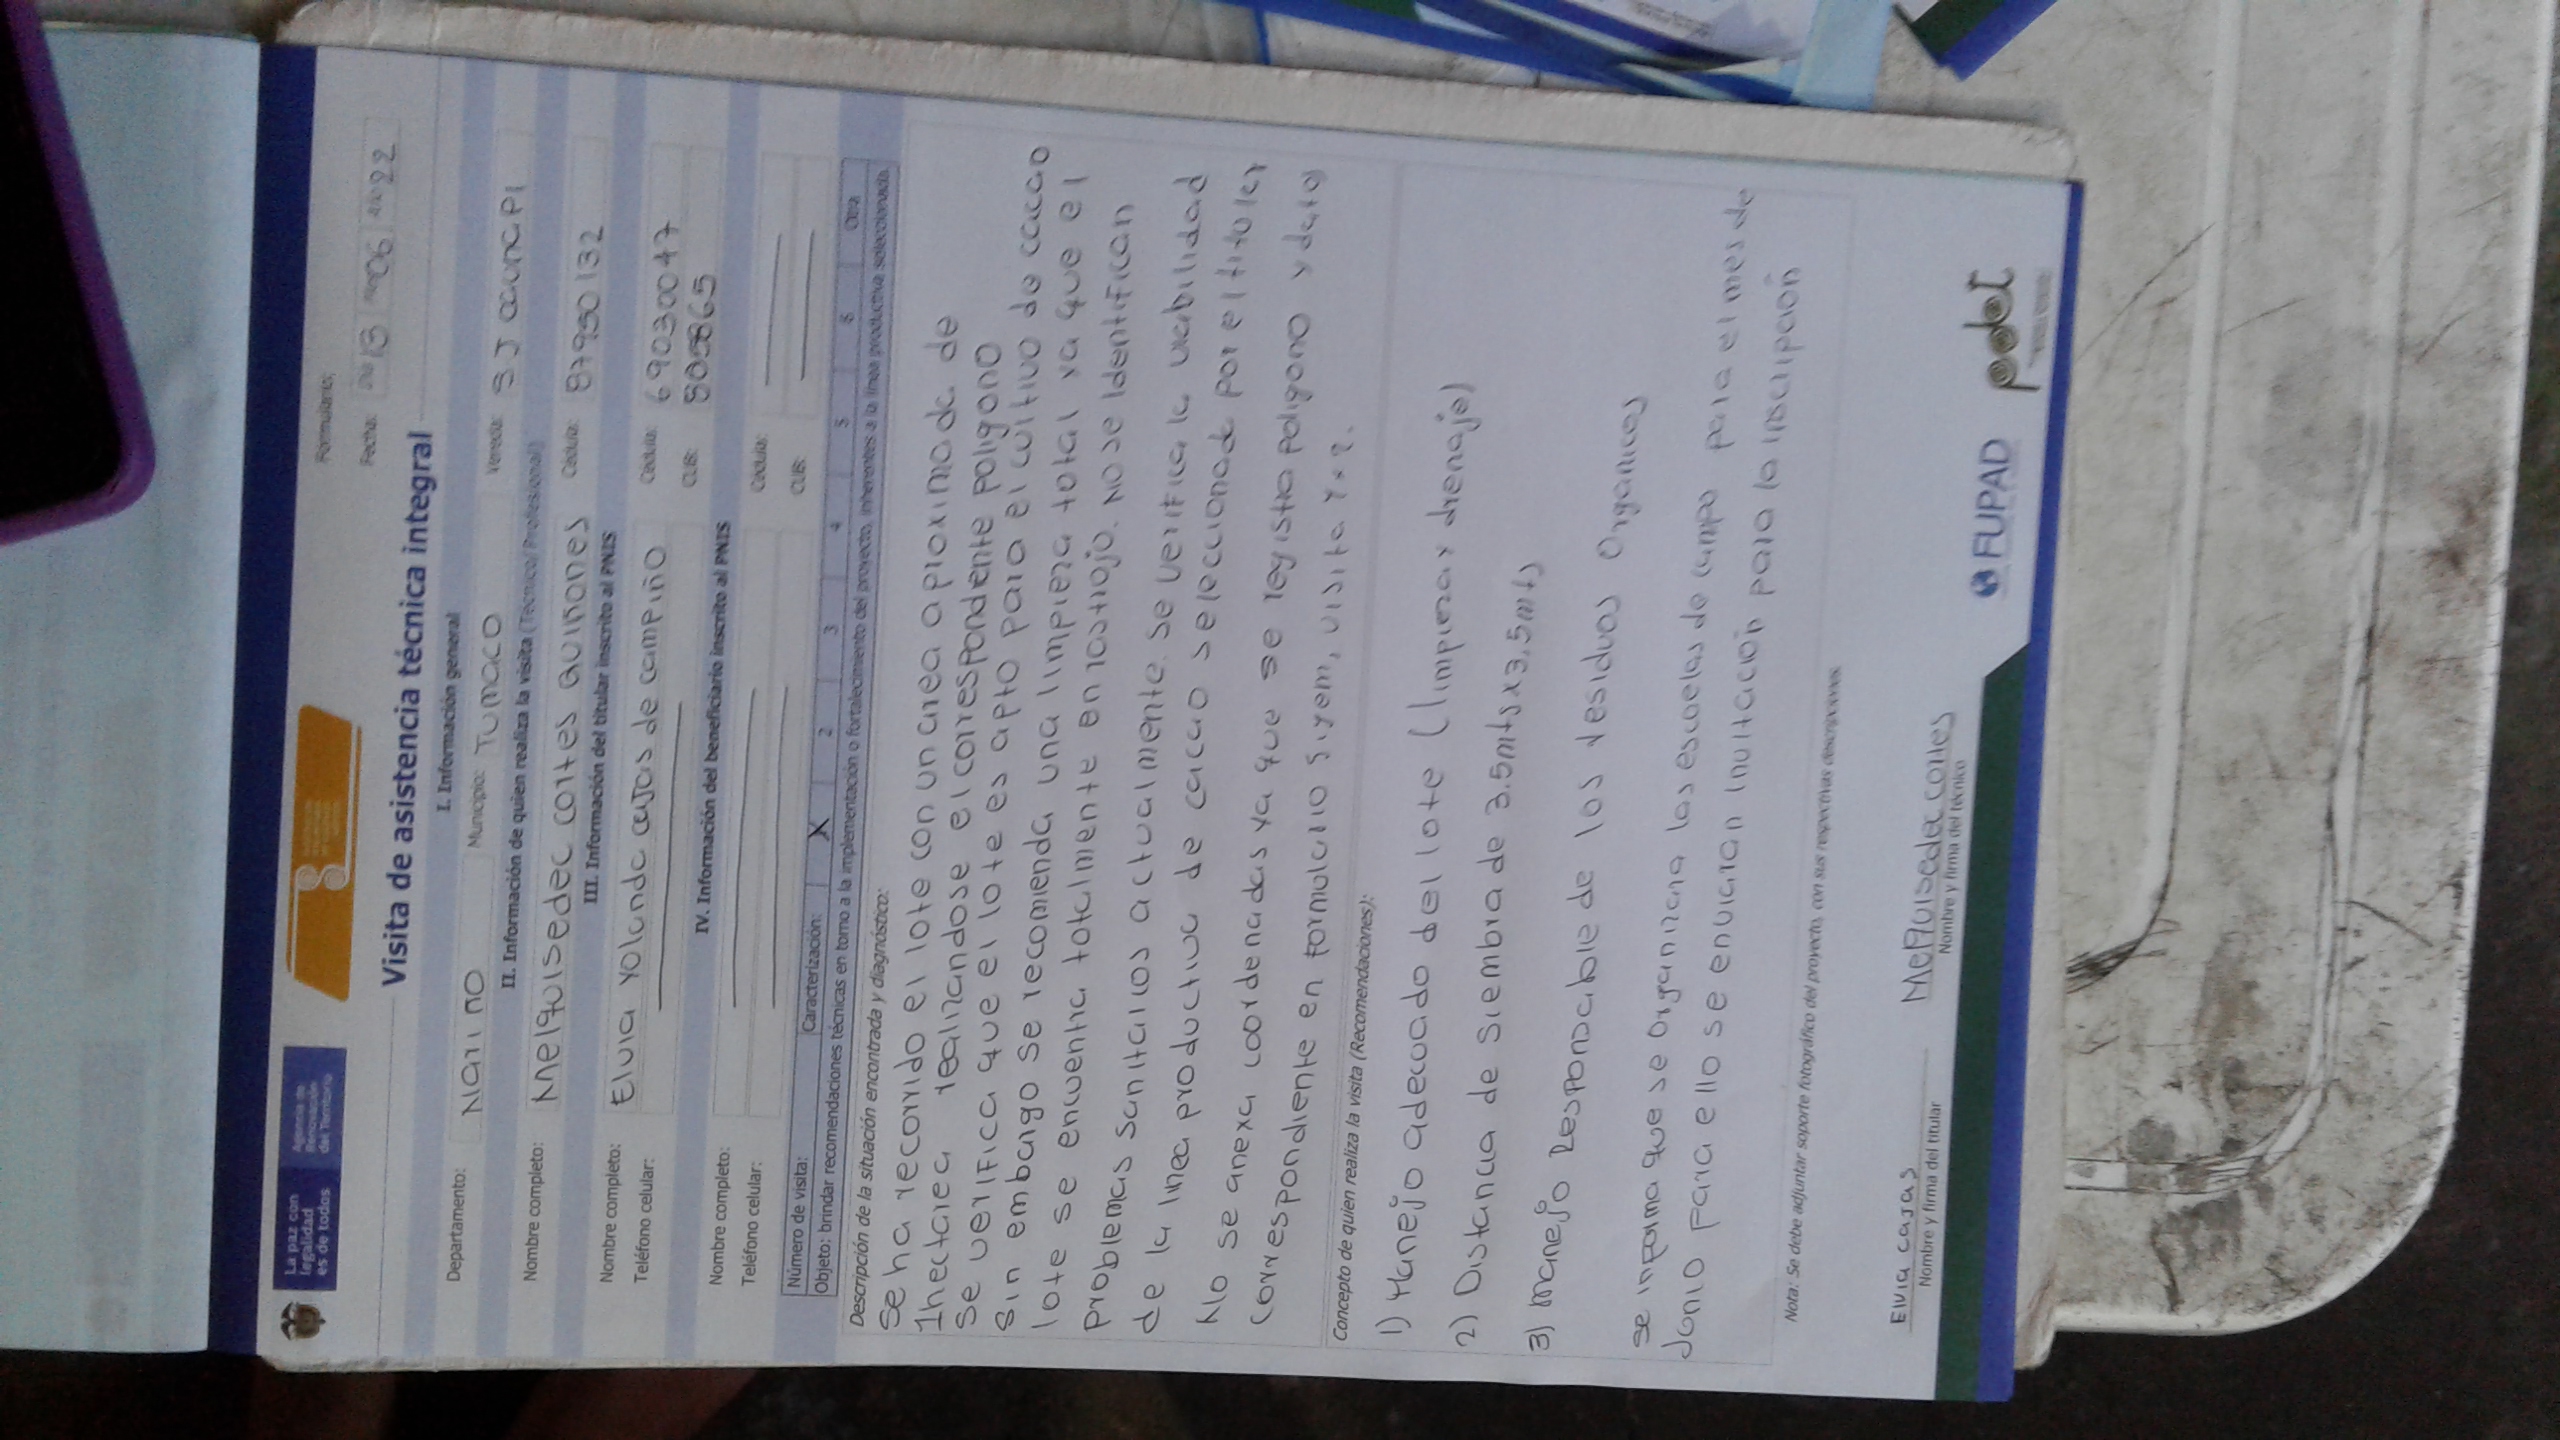 La paz con
legalidad
es de todos
Agencia de
Renovación
del Territorio
Formulario:
Fecha: 13 06 2022
Visita de asistencia técnica integral
I. Información general
Departamento: Nariño Municipio: Tumaco Vereda: S J caunapi
II. Información de quien realiza la visita (Técnico/Profesional)
Nombre completo: Melquisedec cortes quiñones Cédula: 87950132
III. Información del titular inscrito al PNIS
Nombre completo: Elvia Yolanda cajas de campiño Cédula: 69030047
Teléfono celular: CUB:
IV. Información del beneficiario inscrito al PNIS
Nombre completo: Cédula:
Teléfono celular: CUB:
Número de visita: Caracterización: X 2 3 4 5 6 Otra
Objeto: brindar recomendaciones técnicas en torno a la implementación o fortalecimiento del proyecto, inherentes a la línea productiva seleccionada.
Descripción de la situación encontrada y diagnóstico:
Se ha recorrido el lote con un area aproximada de
1hectarea realizandose el correspondiente poligono
Se verifica que el lote es apto para el cultivo de cacao
sin embargo se recomienda una limpieza total ya que el
lote se encuentra totalmente en rastrojo. No se identifican
problemas sanitarios actualmente. se verifica la viabilidad
de la linea productiva de cacao seleccionada por el titular
No se anexa coordenadas ya que se registro poligono y dato
correspondiente en formulario sygem, visita 1 x 2.
Concepto de quien realiza la visita (Recomendaciones):
1) Manejo adecuado del lote (limpieza y drenaje)
2) Distancia de siembra de 3.5mts x 3,5mts
3) manejo Responsable de los residuos Organicos
se informa que se organizara las escuelas de campo para el mes de
Junio para ello se enviaran invitación para la inscripción
Nota: Se debe adjuntar soporte fotográfico del proyecto, con sus respectivas descripciones.
Elvia cajas
Nombre y firma del titular
Melquisedec cortes
Nombre y firma del técnico
FUPAD
pdet